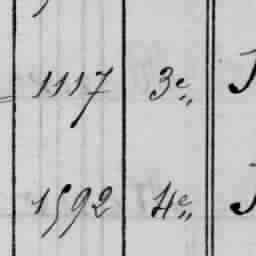 1117 3e„
1592 4e„